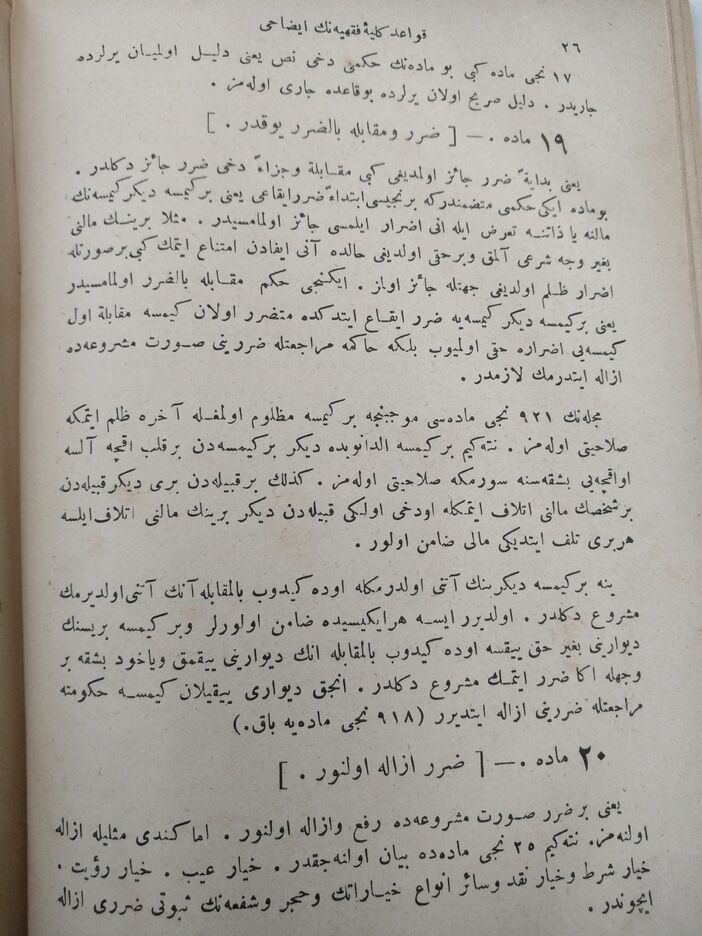 قواعد كليهٔ فقهيه‌نك ايضاحى
٢٦
١٧ نجى ماده كبى بو ماده‌نك حكمى دخى نص يعنى دليل اولميان يرلرده
جاريدر . دليل صريح اولان يرلرده بوقاعده جارى اوله‌مز .
١٩ ماده . — [ ضرر ومقابله بالضرر يوقدر . ]
يعنى بدايةً ضرر جائز اولمديغى كبى مقابلة وجزاءً دخى ضرر جائز دكلدر .
بوماده ايكى حكمى متضمندركه برنجيسى ابتداءً ضررايقاعى يعنى بركيمسه ديكركيمسه‌نك
مالنه يا ذاتنه تعرض ايله انى اضرار ايلمسى جائز اولمامسيدر . مثلا برينك مالنى
بغير وجه شرعى آلمق وبرحقى اولديغى حالده آنى ايفادن امتناع ايتمك كبى برصورتله
اضرار ظلم اولديغى جهتله جائز اولماز . ايكنجى حكم مقابله بالضرر اولمامسيدر
يعنى بركيمسه ديكر كيمسه‌يه ضرر ايقاع ايتدكده متضرر اولان كيمسه مقابلة اول
كيمسه‌يى اضراره حقى اولميوب بلكه حاكمه مراجعتله ضررينى صورت مشروعه‌ده
ازاله ايتدرمك لازمدر .
مجله‌نك ٩٢١ نجى ماده‌سى موجبنجه بركيمسه مظلوم اولمغله آخره ظلم ايتمكه
صلاحيتى اوله‌مز . نته‌كيم بركيمسه الدانوبده ديكر بركيمسه‌دن برقلب اقچه آلسه
اواقچه‌يى بشقه‌سنه سورمكه صلاحيتى اوله‌مز . كذلك برقبيله‌دن برى ديكرقبيله‌دن
برشخصك مالنى اتلاف ايتمكله اودخى اولكى قبيله‌دن ديكر برينك مالنى اتلاف‌ايلسه
هربرى تلف ايتديكى مالى ضامن اولور .
ينه بركيمسه ديكرينك آتنى اولدرمكله اوده كيدوب بالمقابله آنك آتنى‌اولديرمك
مشروع دكلدر . اولديرر ايسه هرايكيسيده ضامن اولورلر وبركيمسه بريسنك
ديوارينى بغير حق ييقسه اوده كيدوب بالمقابله انك ديوارينى ييقمق وياخود بشقه بر
وجهله اكا ضرر ايتمك مشروع دكلدر . انجق ديوارى ييقيلان كيمسه حكومته
مراجعتله ضررينى ازاله ايتديرر (٩١٨ نجى ماده‌يه باق.)
٢٠ ماده . — [ ضرر ازاله اولنور . ]
يعنى برضرر صورت مشروعه‌ده رفع وازاله اولنور . اماكندى مثليله ازاله
اولنه‌مز. نته‌كيم ٢٥ نجى ماده‌ده بيان اولنه‌جقدر . خيار عيب . خيار رؤيت .
خيار شرط وخيار نقد وسائر انواع خياراتك وحجر وشفعه‌نك ثبوتى ضررى ازاله
ايچوندر .